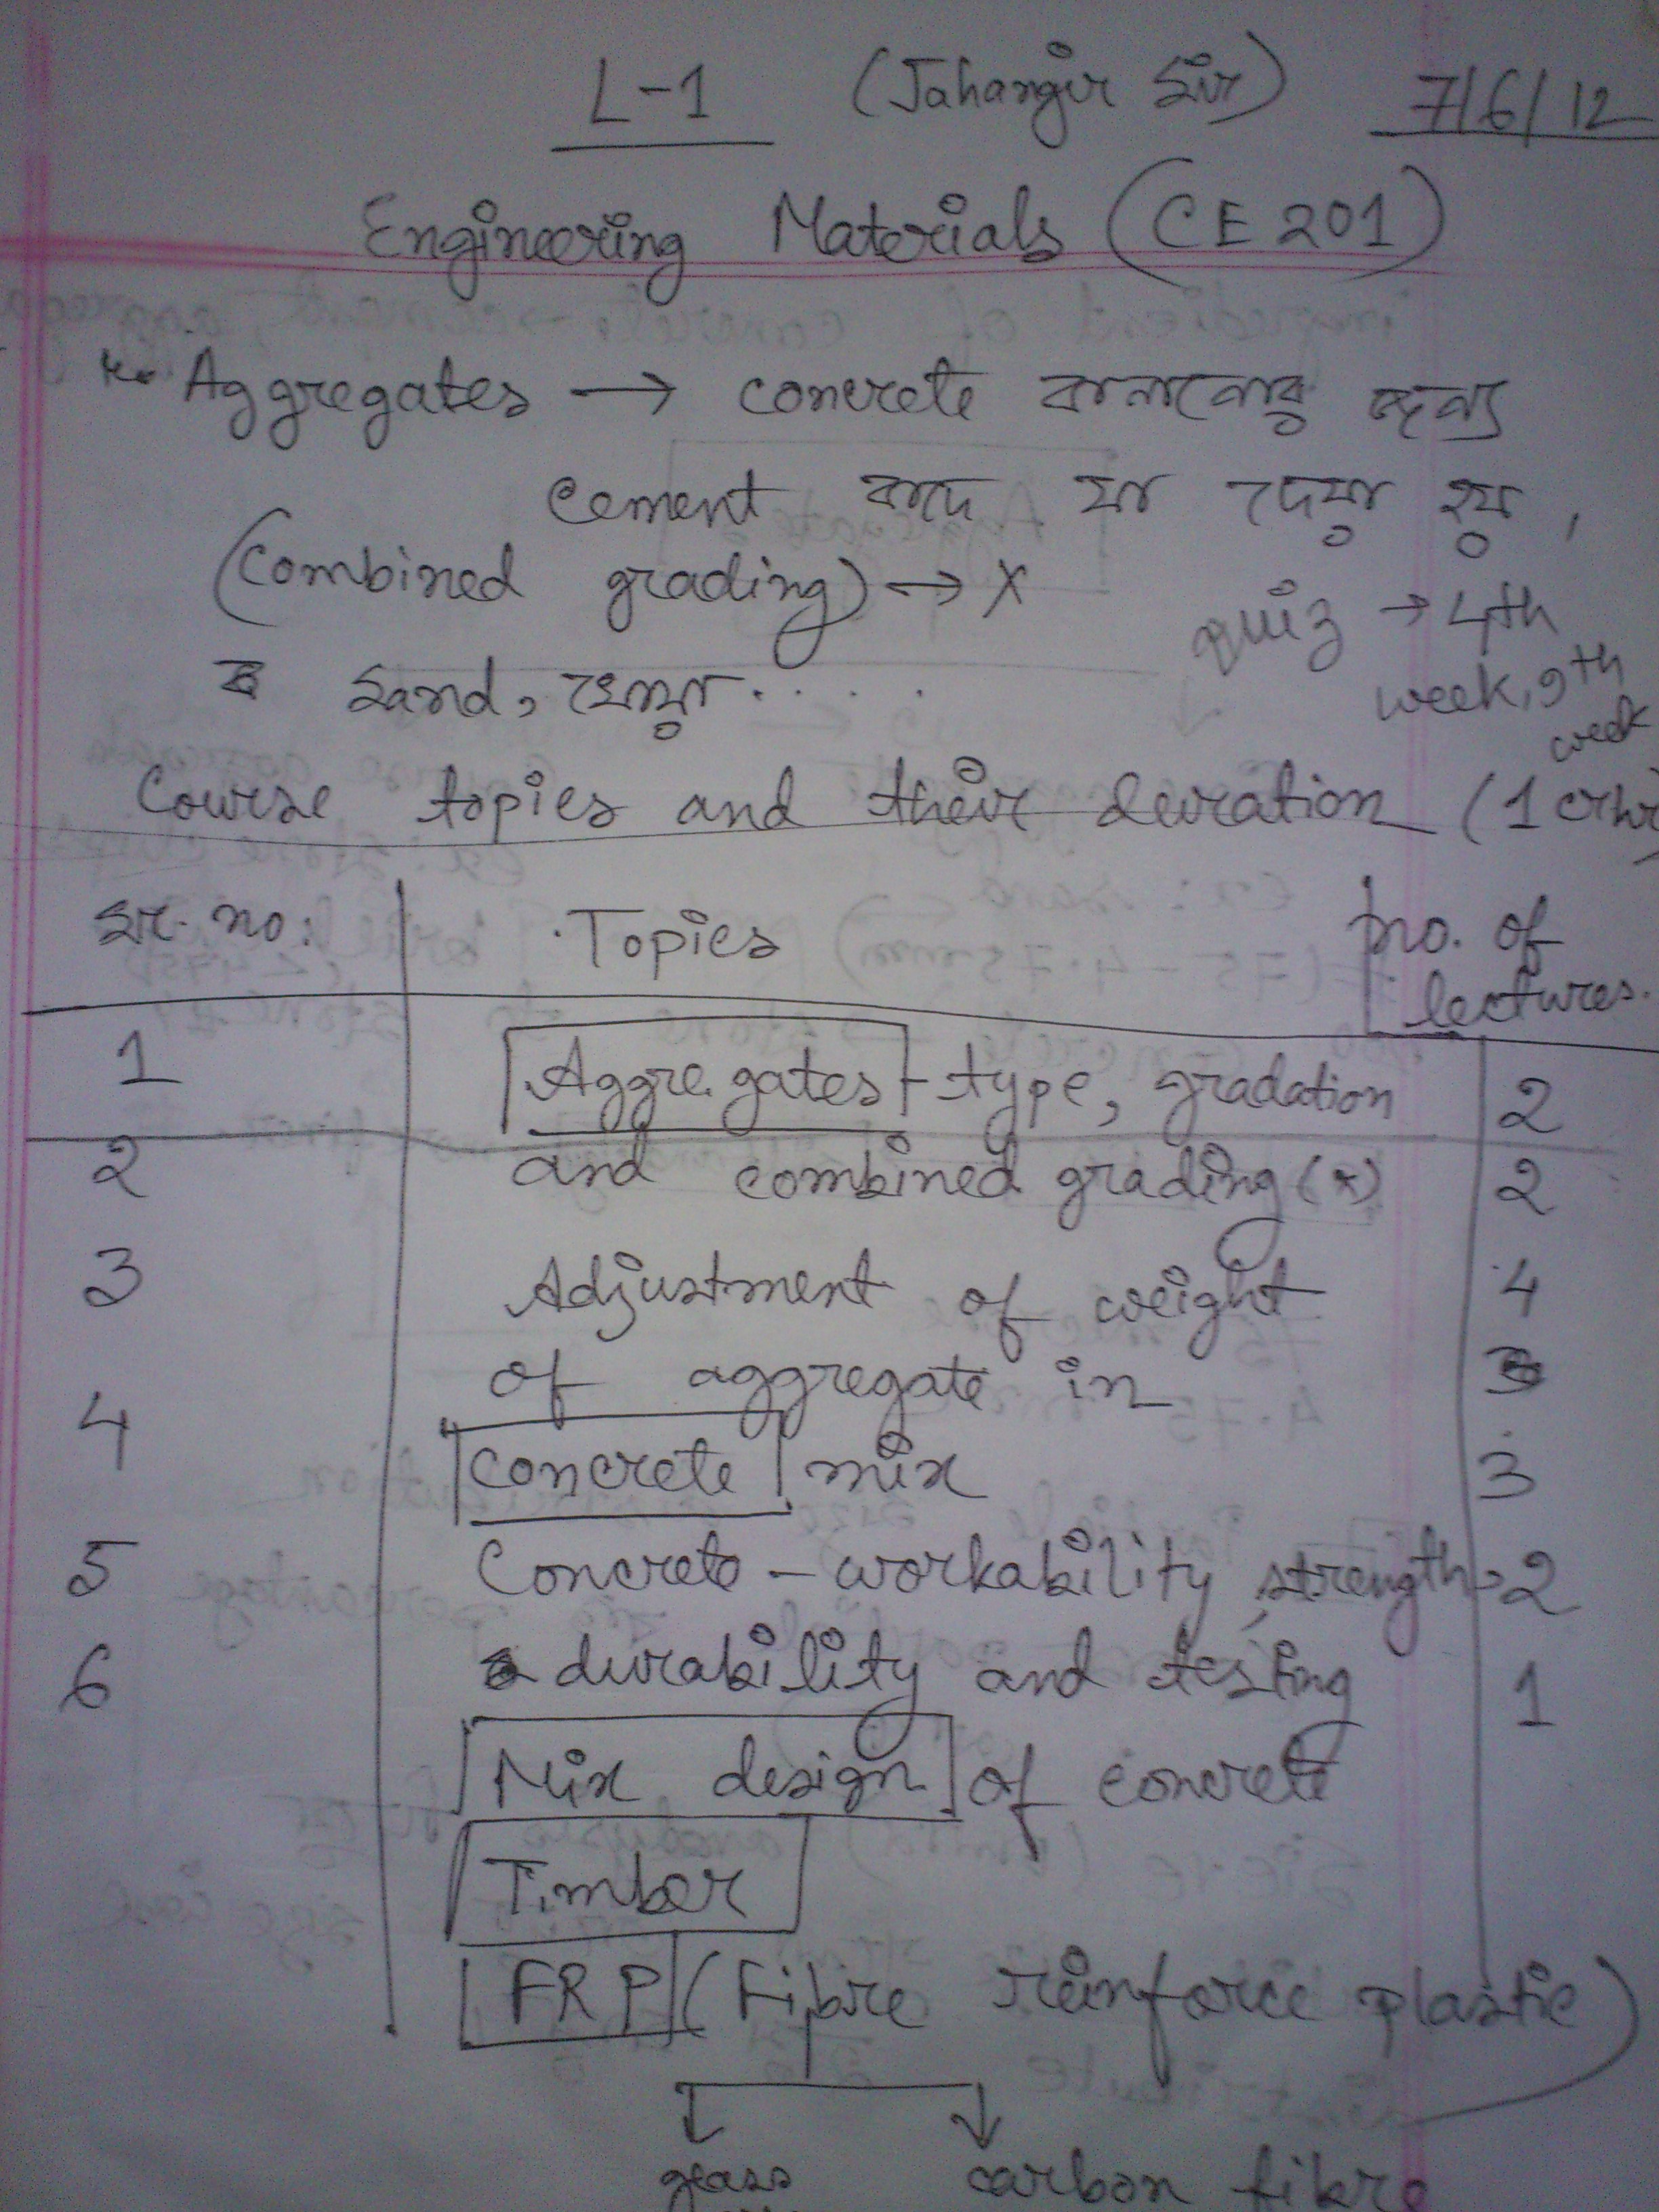 L-1 (Jahangir Sir) 7/6/12
Engineering Materials (CE 201)
Aggregates → concrete বানানোর জন্য
cement বাদে যা দেয়া হয়,
(Combined grading) → X
quiz → 4th
week, 9th
week
Sand, খোয়া . . . .
Course topics and their duration (1 crhr)
Sr. no: Topics no. of
lectures.
1 Aggregates - type, gradation 2
2 and combined grading (*) 2
3 Adjustment of weight 4
of aggregate in
4 Concrete mix 3
5 Concrete - workability, strength, 2
durability and testing
6 1
Mix design of concrete
Timber
FRP (Fibre reinforce plastic)
glass carbon fibre